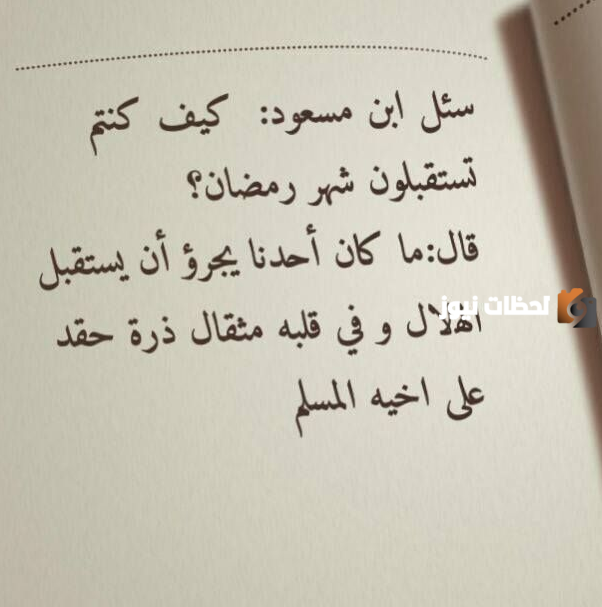 سئل ابن مسعود: كيف كنتم
تستقبلون شهر رمضان؟
قال:ما كان أحدنا يجرؤ أن يستقبل
الهلال و في قلبه مثقال ذرة حقد
على اخيه المسلم
لحظات نيوز